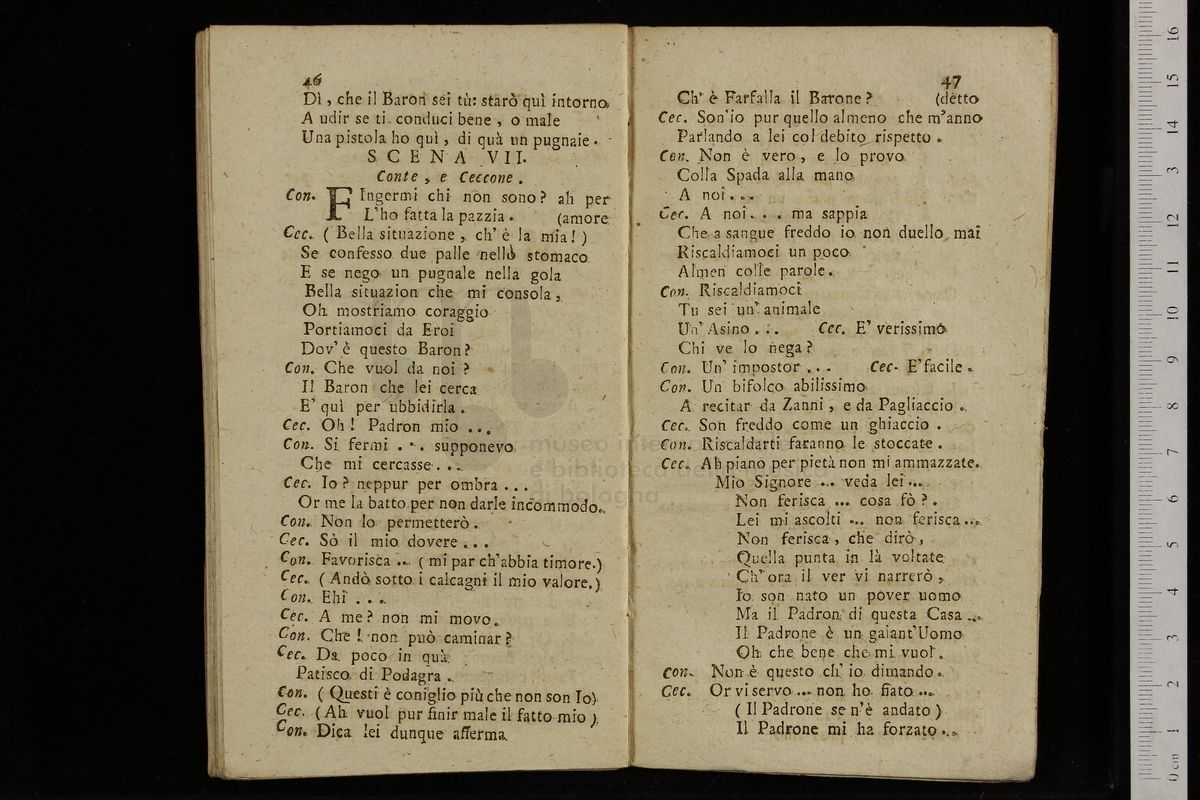 46
Dì, che il Baron sei tù: starò quì intorno,
A udir se ti conduci bene, o male
Una pistola ho quì, di quà un pugnale.
SCENA VII.
Conte, e Ceccone.
Con. FIngermi chi non sono? ah per
L'ho fatta la pazzia. (amore
Cec. (Bella situazione, ch'è la mia!)
Se confesso due palle nello stomaco
E se nego un pugnale nella gola
Bella situazion che mi consola,
Oh mostriamo coraggio
Portiamoci da Eroi
Dov'è questo Baron?
Con. Che vuol da noi?
Il Baron che lei cerca
E' quì per ubbidirla.
Cec. Oh! Padron mio ...
Con. Si fermi ... supponevo
Che mi cercasse...
Cec. Io? neppur per ombra...
Or me la batto per non darle incommodo.
Con. Non lo permetterò.
Cec. Sò il mio dovere...
Con. Favorisca ... (mi par ch'abbia timore.)
Cec. (Andò sotto i calcagni il mio valore.)
Con. Ehi ...
Cec. A me? non mi movo.
Con. Che! non può caminar?
Cec. Da poco in quà
Patisco di Podagra.
Con. (Questi è coniglio più che non son Io)
Cec. (Ah vuol pur finir male il fatto mio)
Con. Dica lei dunque afferma
47
Ch' è Farfalla il Barone? (detto
Cec. Son'io pur quello almeno che m'anno
Parlando a lei col debito rispetto.
Con. Non è vero, e lo provo
Colla Spada alla mano
A noi...
Cec. A noi... ma sappia
Che a sangue freddo io non duello mai
Riscaldiamoci un poco
Almen colle parole.
Con. Riscaldiamoci
Tu sei un' animale
Un' Asino... Cec. E' verissimo
Chi ve lo nega?
Con. Un' impostor... Cec. E' facile.
Con. Un bifolco abilissimo
A recitar da Zanni, e da Pagliaccio.
Cec. Son freddo come un ghiaccio.
Con. Riscaldarti faranno le stoccate.
Cec. Ah piano per pietà non mi ammazzate.
Mio Signore ... veda lei ...
Non ferisca ... cosa fò?.
Lei mi ascolti ... non ferisca...
Non ferisca, che dirò,
Quella punta in là voltate
Ch' ora il ver vi narrerò,
Io son nato un pover uomo
Ma il Padron di questa Casa ...
Il Padrone è un galant'Uomo
Oh che bene che mi vuol.
Con. Non è questo ch' io dimando.
Cec. Or vi servo ... non ho fiato ...
(Il Padrone se n'è andato)
Il Padrone mi ha forzato...